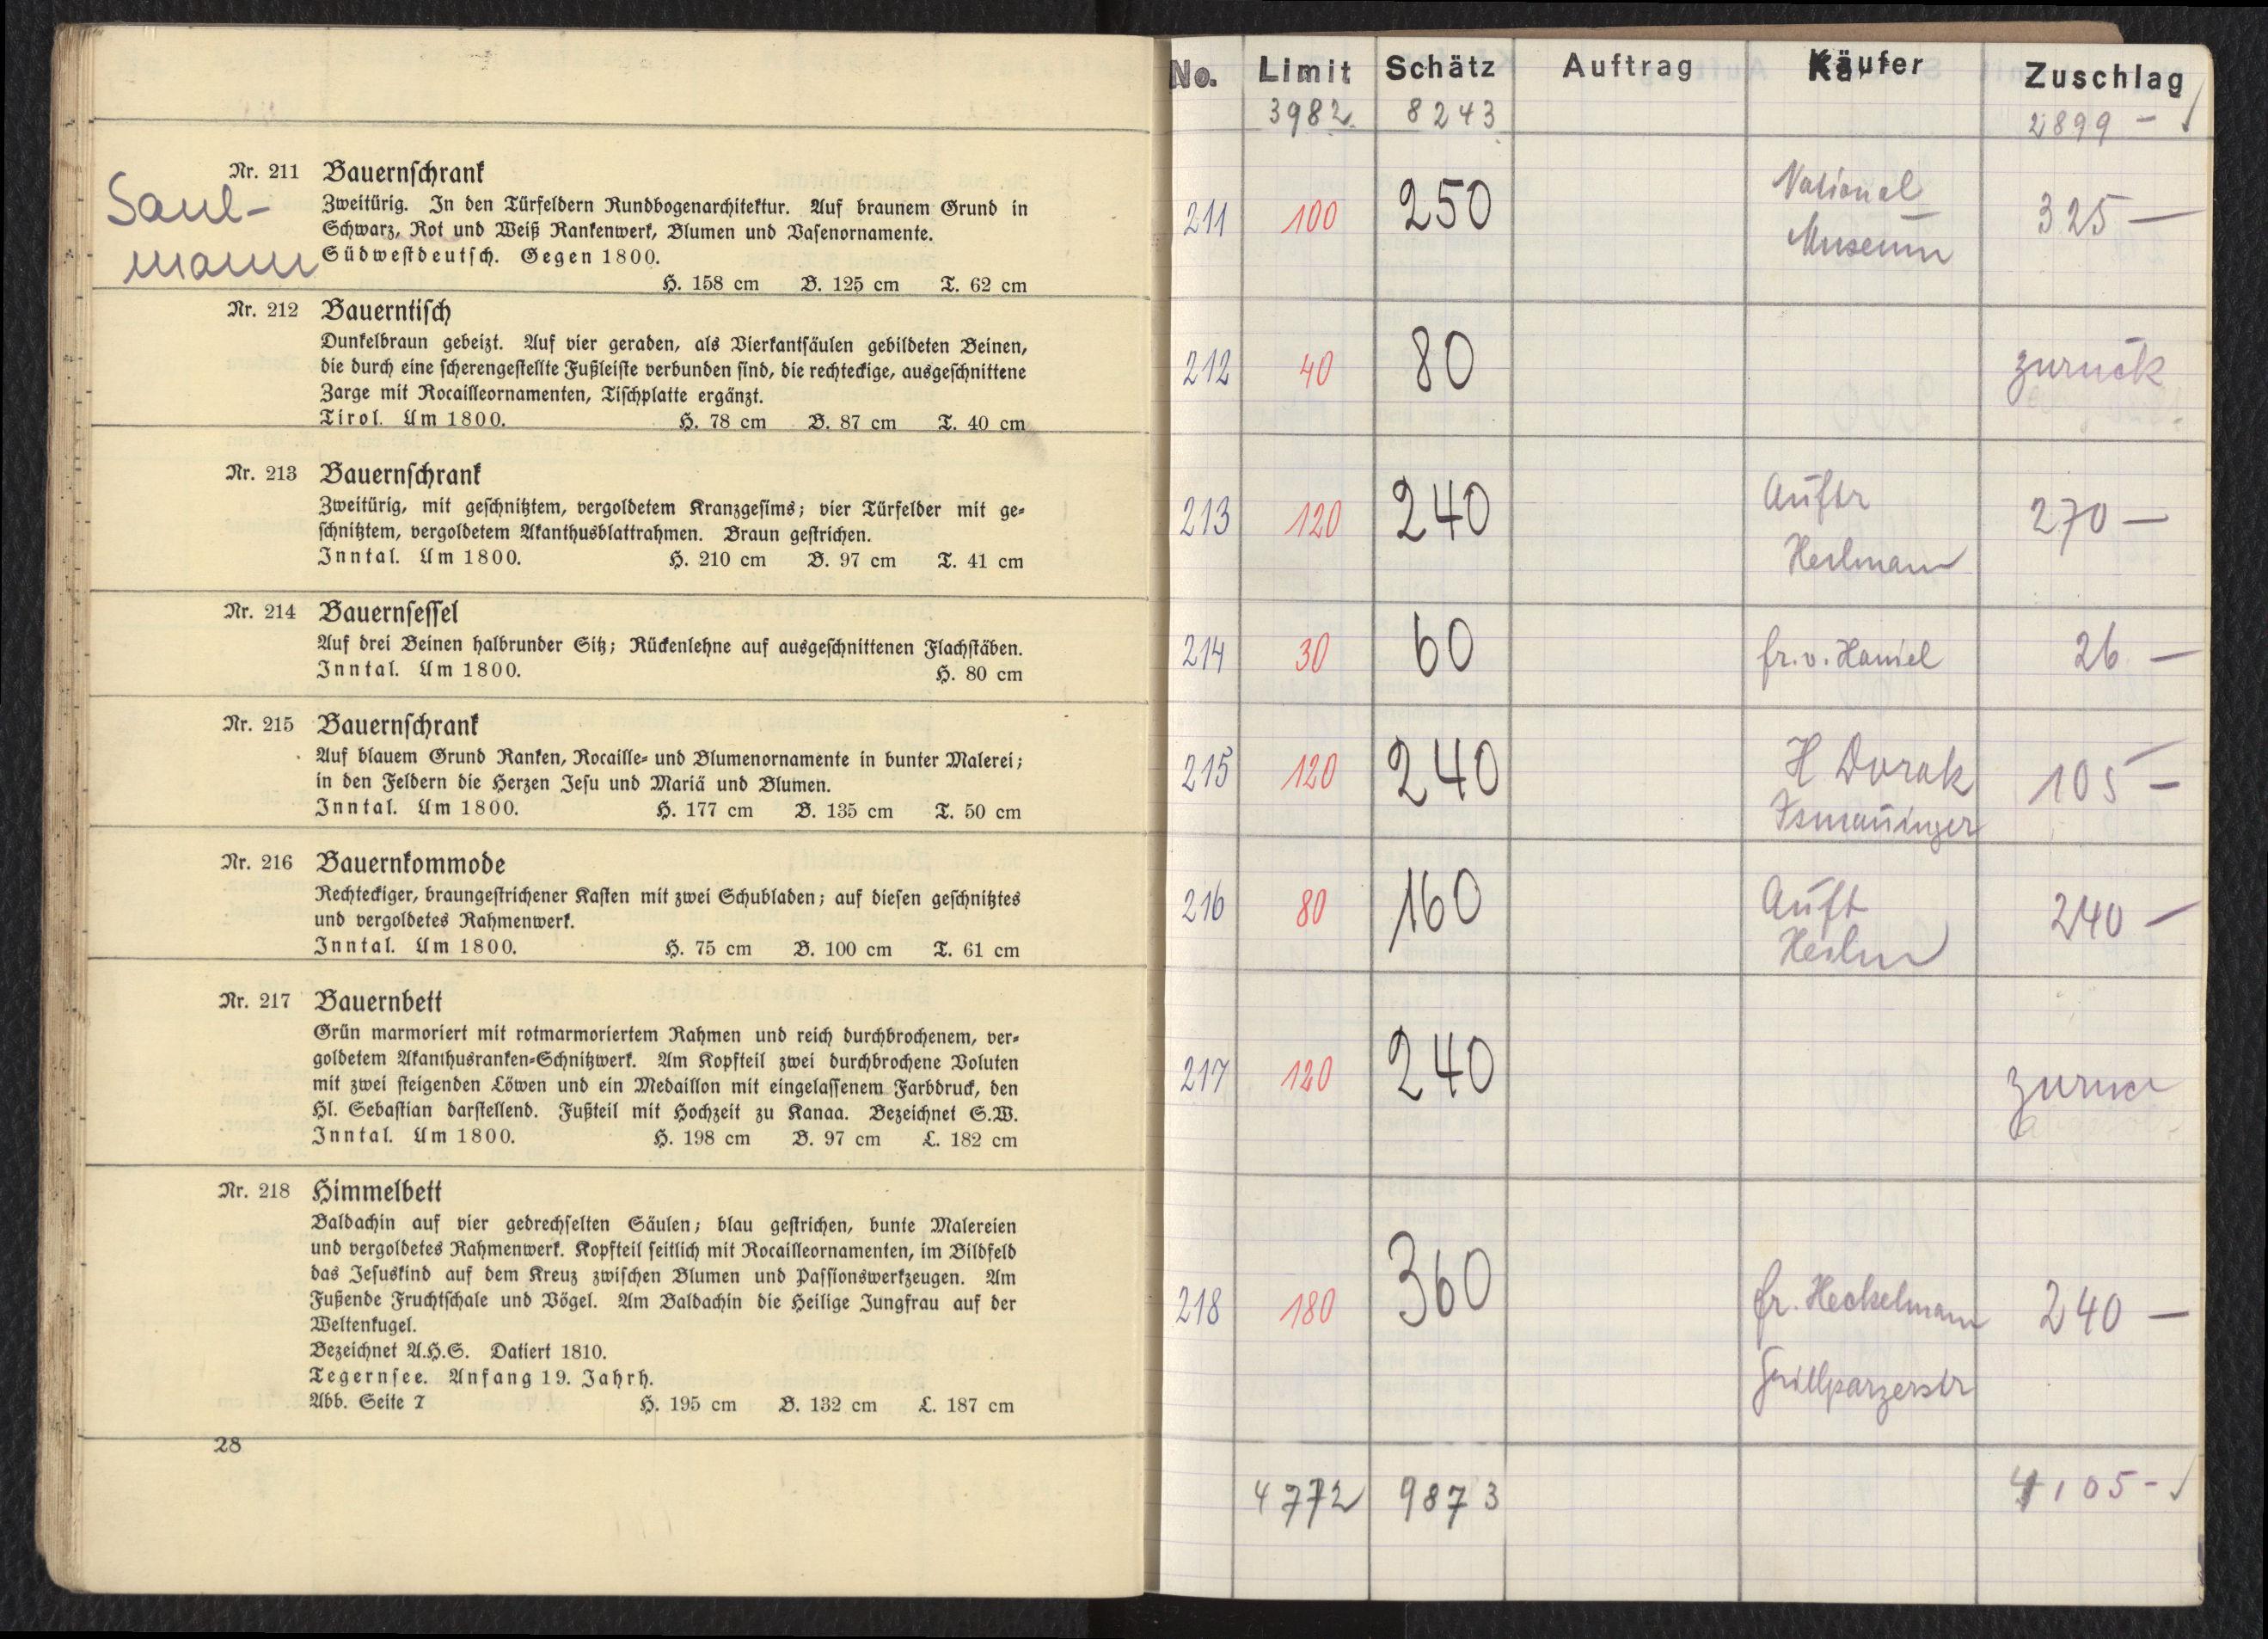 Nr. 211 Bauernschrank
Zweitürig. In den Türfeldern Rundbogenarchitektur. Auf braunem Grund in
Schwarz, Rot und Weiß Rankenwerk, Blumen und Vasenornamente.
Südwestdeutsch. Gegen 1800.
H. 158 cm B. 125 cm T. 62 cm
Saul-
mann
Nr. 212 Bauerntisch
Dunkelbraun gebeizt. Auf vier geraden, als Vierkantsäulen gebildeten Beinen,
die durch eine scherengestellte Fußleiste verbunden sind, die rechteckige, ausgeschnittene
Zarge mit Rocailleornamenten, Tischplatte ergänzt.
Tirol. Um 1800. H. 78 cm B. 87 cm T. 40 cm
Nr. 213 Bauernschrank
Zweitürig, mit geschnitztem, vergoldetem Kranzgesims; vier Türfelder mit ge-
schnitztem, vergoldetem Akanthusblattrahmen. Braun gestrichen.
Inntal. Um 1800. H. 210 cm B. 97 cm T. 41 cm
Nr. 214 Bauernsessel
Auf drei Beinen halbrunder Sitz; Rückenlehne auf ausgeschnittenen Flachstäben.
Inntal. Um 1800. H. 80 cm
Nr. 215 Bauernschrank
Auf blauem Grund Ranken, Rocaille- und Blumenornamente in bunter Malerei;
in den Feldern die Herzen Jesu und Mariä und Blumen.
Inntal. Um 1800. H. 177 cm B. 135 cm T. 50 cm
Nr. 216 Bauernkommode
Rechteckiger, braungestrichener Kasten mit zwei Schubladen; auf diesen geschnitztes
und vergoldetes Rahmenwerk.
Inntal. Um 1800. H. 75 cm B. 100 cm T. 61 cm
Nr. 217 Bauernbett
Grün marmoriert mit rotmarmoriertem Rahmen und reich durchbrochenem, ver-
goldetem Akanthusranken-Schnitzwerk. Am Kopfteil zwei durchbrochene Voluten
mit zwei steigenden Löwen und ein Medaillon mit eingelassenem Farbdruck, den
Hl. Sebastian darstellend. Fußteil mit Hochzeit zu Kanaa. Bezeichnet S.W.
Inntal. Um 1800. H. 198 cm B. 97 cm L. 182 cm
Nr. 218 Himmelbett
Baldachin auf vier gedrechselten Säulen; blau gestrichen, bunte Malereien
und vergoldetes Rahmenwerk. Kopfteil seitlich mit Rocailleornamenten, im Bildfeld
das Jesuskind auf dem Kreuz zwischen Blumen und Passionswerkzeugen. Am
Fußende Fruchtschale und Vögel. Am Baldachin die Heilige Jungfrau auf der
Weltenkugel.
Bezeichnet A.H.S. Datiert 1810.
Tegernsee. Anfang 19. Jahrh.
Abb. Seite 7 H. 195 cm B. 132 cm L. 187 cm
28
No. Limit Schätz Auftrag Käufer Zuschlag
3982 8243 2899 -
211 100 250 National 325 —
Museum
212 40 80 zurück
213 120 240 Auftr 270 —
Heilmann
214 30 60 fr. v. Haniel 26 —
215 120 240 H Dorak 105 -
Ismaninger
216 80 160 Auft 240 —
Heilm
217 120 240 zurück
218 180 360 fr. Heckelmann 240 —
Grillparzerstr
4772 9873 4105 -